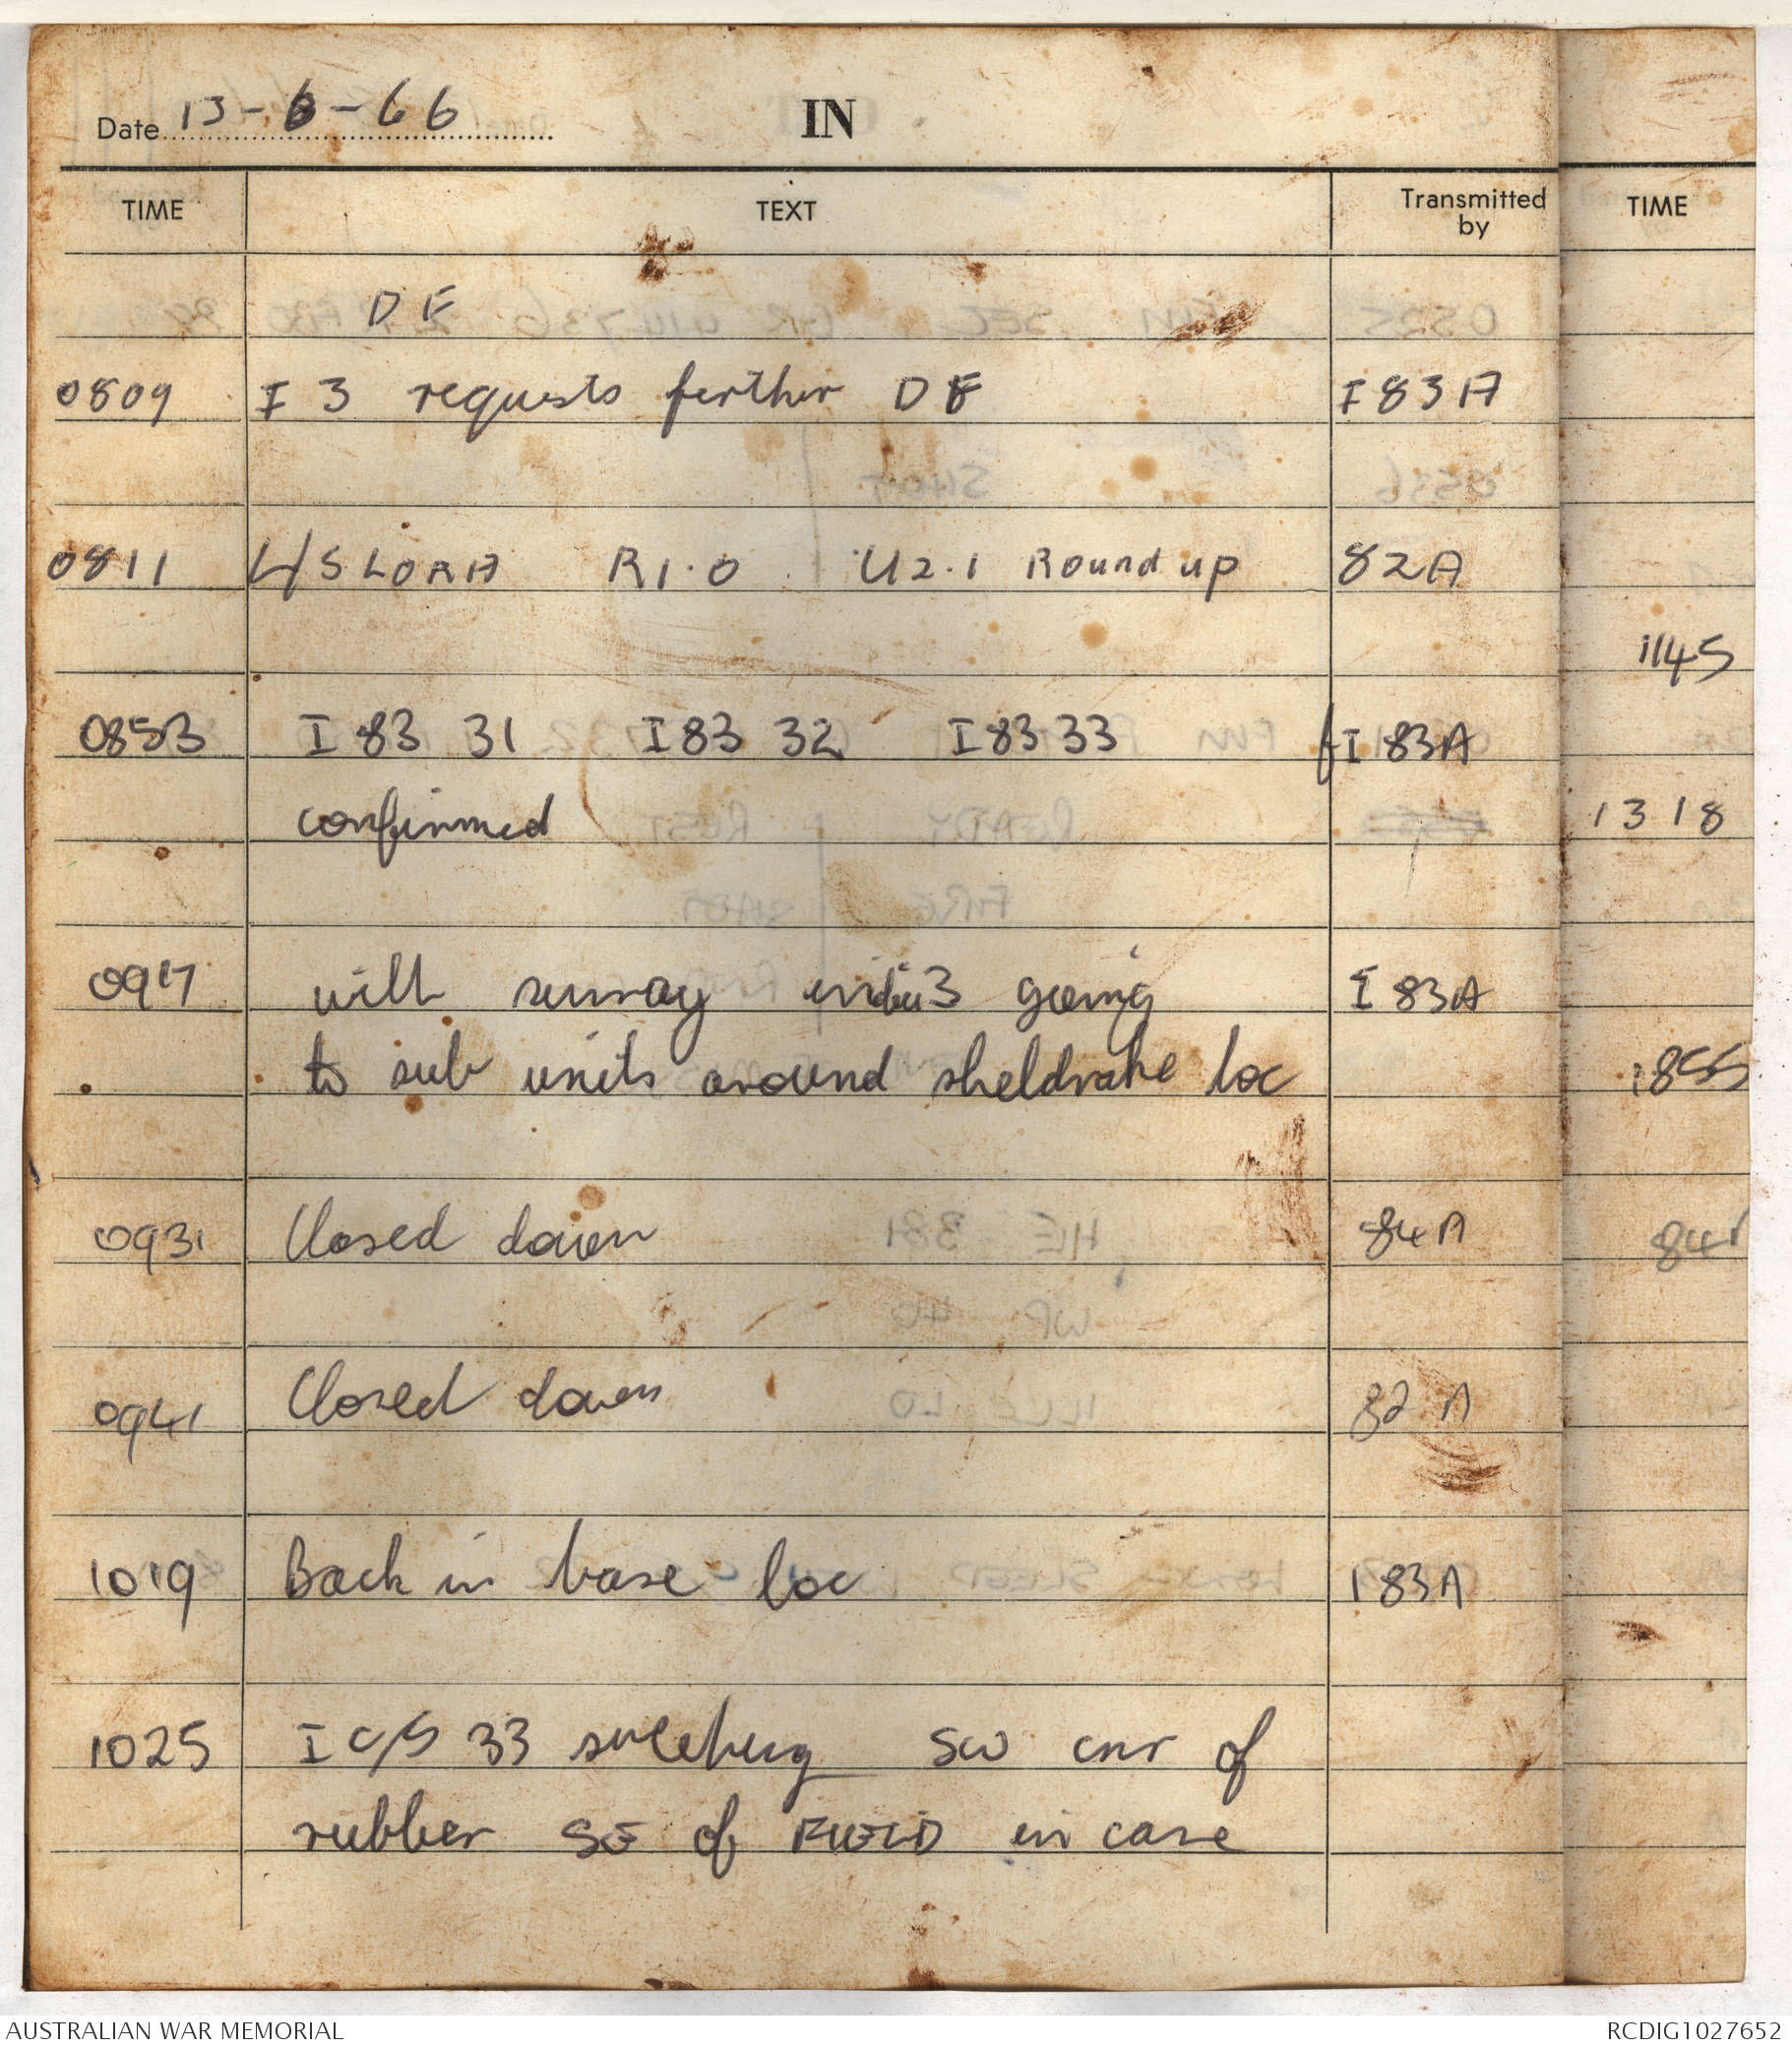 Date 13-6-66 IN
TIME TEXT Transmitted by TIME
DF
0809 I 3 requests further DF I 83A
0811 R1.0 U2.1 Round up 82A
1145
0853 I 83 31 I 83 32 I 83 33 I 83A
confirmed 1318
0917 will going I 83A
to sub units around sheldrake loc 1855
0931 Closed down 84A
0941 Closed down 82A
1019 Back in base loc I 83A
1025 I C/S 33 SW cnr of
rubber SE of FIELD in case
AUSTRALIAN WAR MEMORIAL RCDIG1027652